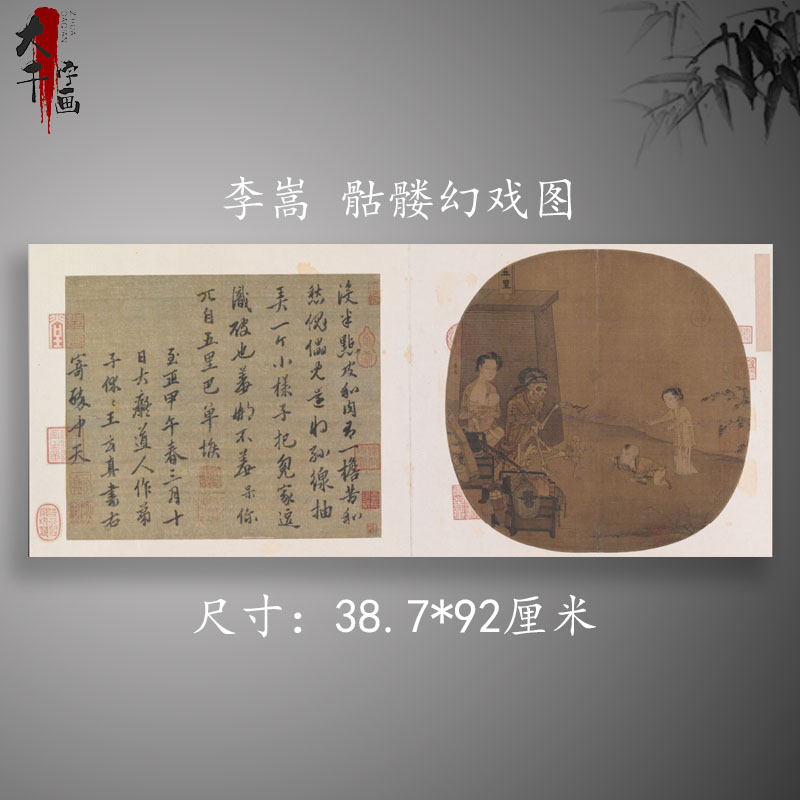 大千
字画
DAQIAN
ZIHUA
李嵩 骷髅幻戏图
没半點皮和肉有一擔苦和
愁傀儡兒還將絲線抽
弄一个小樣子把冤家逗
識破也羞那不羞呆你
兀自五里巴单堠
至正甲午春三月十
日大癡道人作弟
子休々王玄真書右
寄醉中天
五里
尺寸：38.7*92厘米